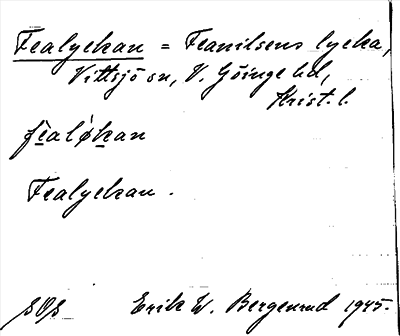 Fealyckan = Feanilsens lycka,
Vittsjö sn, V. Göinge hd,
Krist. l.
fealøkan
Fealyckan.
Erik W. Bergenrud 1945.